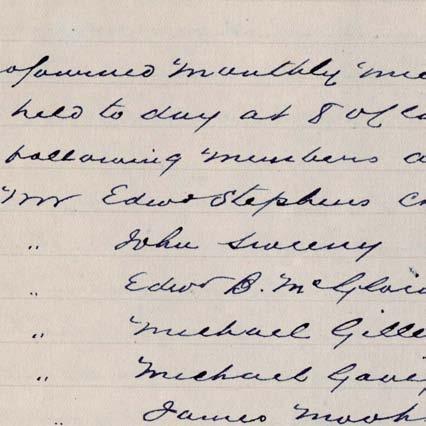 ofourned Monthly Mee
held to day at 8 o'Clo
following Members a
Mr Edwd Stephens C
" John Sweeny
" Edwd B. McGloi
" Michael Gille
" Michael Gavi
" James Moo